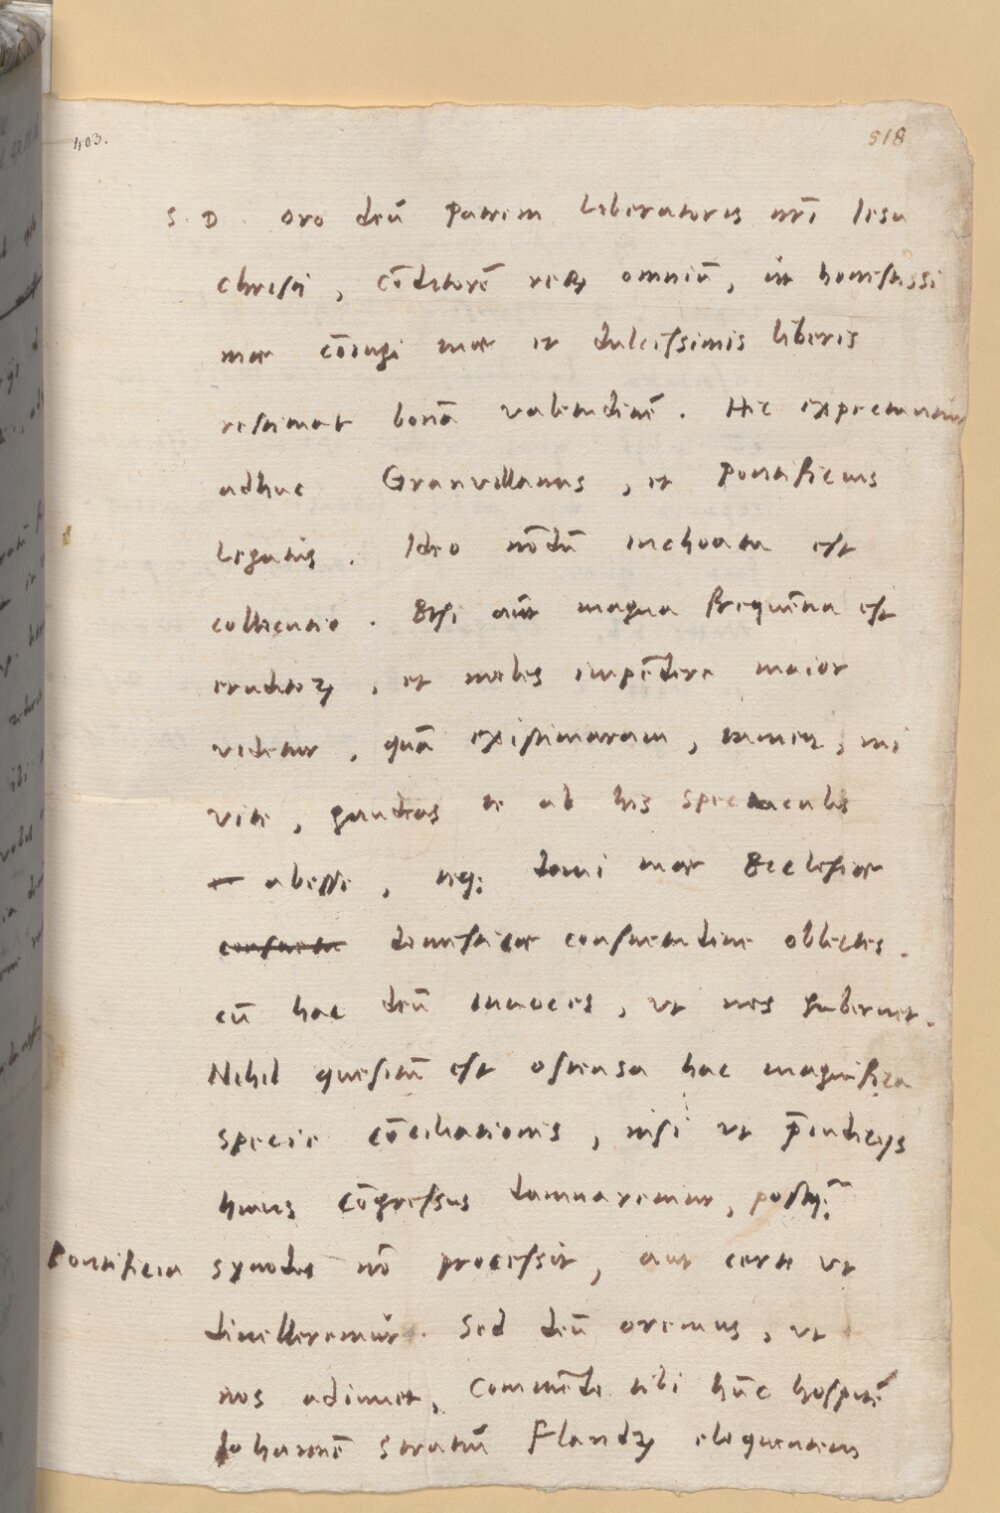 403.
518
S. D. Oro deū patrem Liberatoris nr̄i Iesu
christi, cōditorē rerꝝ omniū, ut honestissi
mae cōiugi tuae et dulcissimis liberis
restituat bonā valetudinē. Hic expectantur
adhuc Granvillanus, et Pontificius
Legatus. Ideo nōdū inchoata est
collocutio. Etsi aūt magna frequētia est
eruditoꝝ, et moles impēdere maior
videtur, quā existimaram, tamen, mi
vite, gaudeas te ab his spectaculis
abesse, teq; domi tuae Ecclesiae
consuetu domesticae consuetudine oblectes.
cū hac deū inuoces, ut nos gubernet.
Nihil quesitū est ostensa hac magnifica
specie cōciliationis, nisi ut p̄iudicijs
huius cōgressus damnaremur, postq̄;
Pontificia synodus nō processit, aut certe ut
diuelleremur. Sed deū oremus, ut
nos adiuuet, Commēdo tibi hūc hospitē
Iohannē Stratiū Flandrꝝ eloquentem